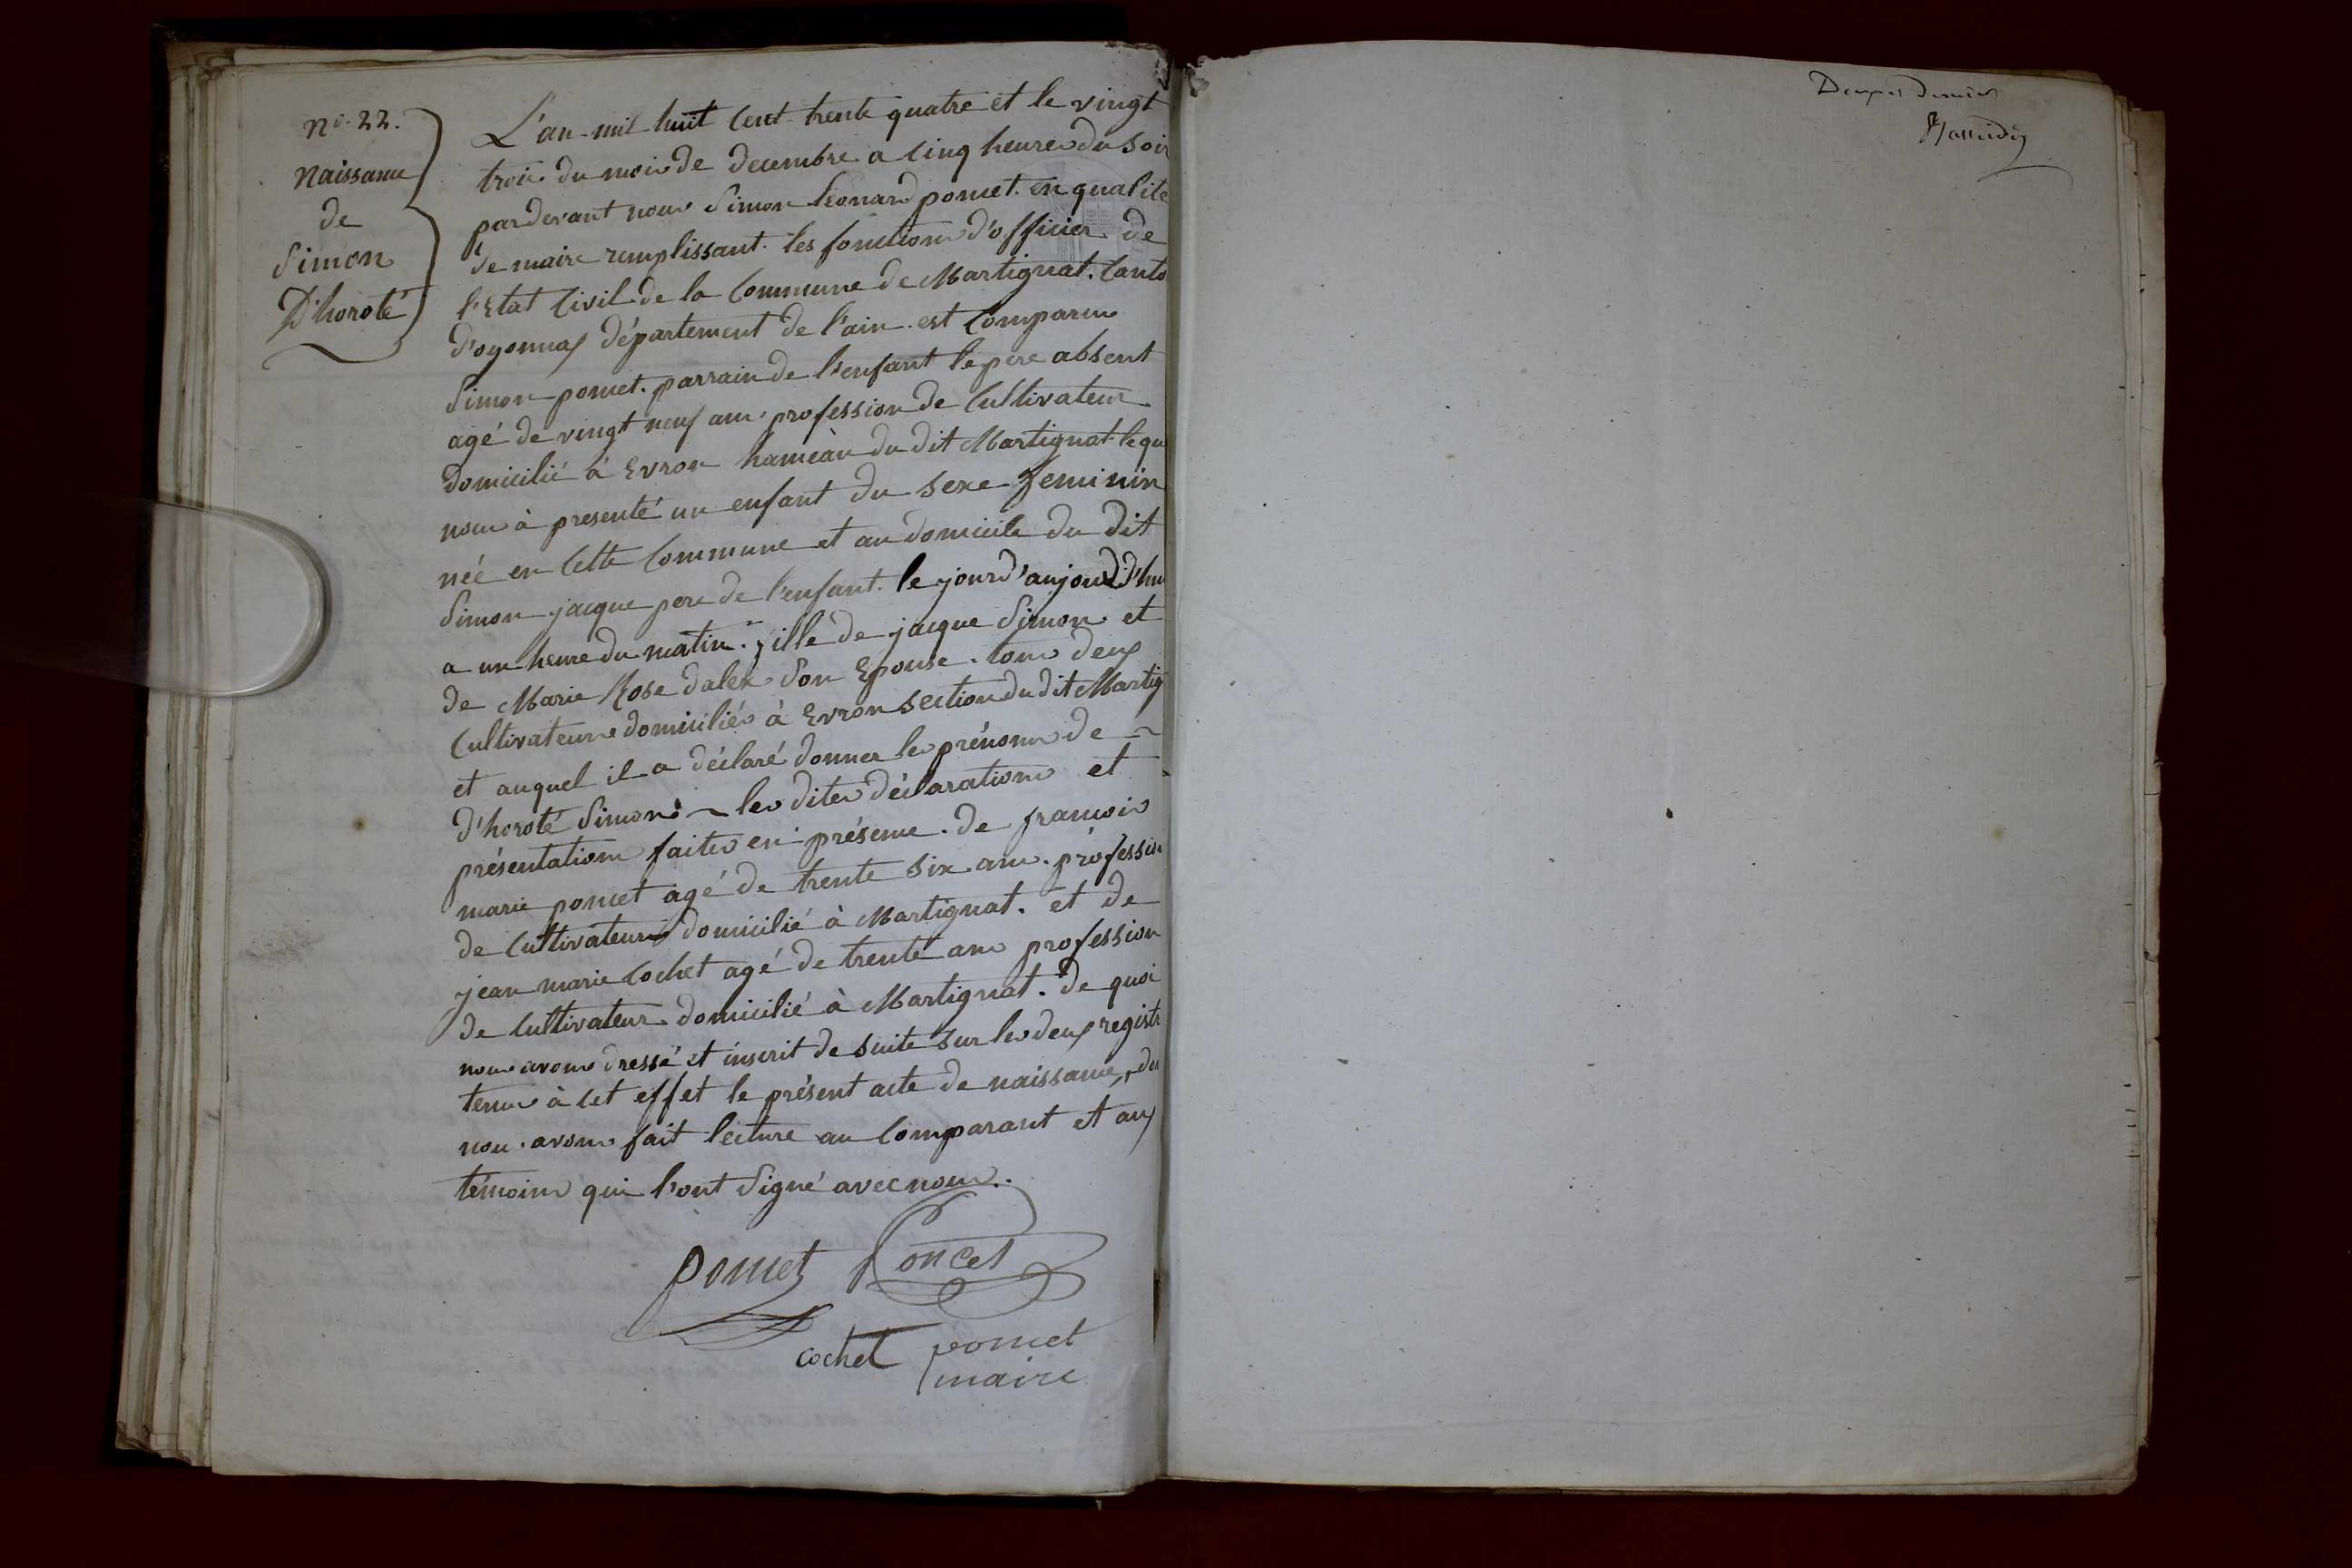 n.o 22.
naissance
de
Simon
D'horoté
L'an mil huit cent trente quatre et le vingt
trois du mois de decembre a cinq heures du soir
pardevant nous Simon Léonard poncet en qualité
de maire remplissant les fonctions d'officier de
l'Etat Civil de la Commune de Martignat. Canto
d'oyonnax département de l'ain est Comparus
Simon poncet. parrain de l'enfant le père absent
agé de vingt neuf ans. profession de Cultivateur
domicilié à Evron hameau du dit Martignat lequ
nous à presenté un enfant du sexe feminin
née en Cette Commune et au domicile du dit
Simon jacque pere de l'enfant. le jour d'aujourd'hu
a un heure du matin. fille de jacque Simon et
de Marie Rose dalex Son Epouse. tous deux
Cultivateurs domiciliés à Evron section du dit Martig
et auquel il a déclaré donner les prénoms de
d'horoté Simon les dites déclarations et
présentations faites en présence. de francois
marie poncet agé de trente six ans. préfession
de Cultivateurs domicilié à Martignat. et de
jean marie Cochet agé de trente ans profession
de Cultivateur domicilié à Martignat. De quoi
nous avons dressé et inscrit de suite sur les deux registr
tenus à cet effet le présent acte de naissance, du
nous avons fait lecture au Comparant et aux
témoins qui l'ont Signé avec nous.
poncet Poncet
cochet poncet
maire